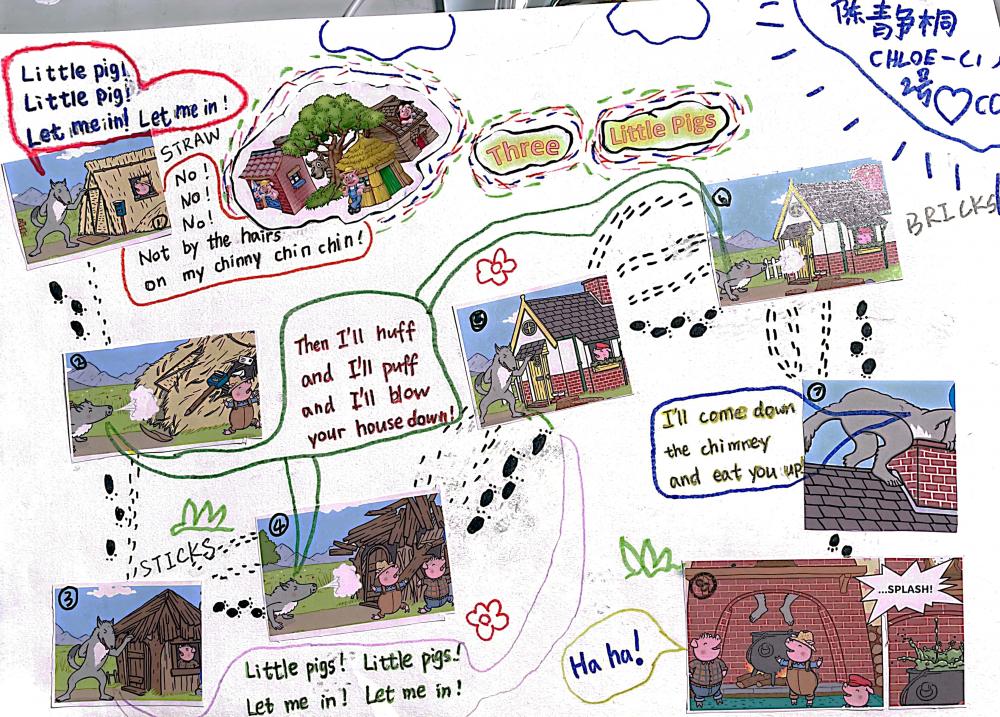 陈静桐
CHLOE-CI
2号
Three Little Pigs
Little pig!
Little pig!
Let me in! Let me in!
STRAW
No!
No!
No!
Not by the hairs
on my chinny chin chin!
①
②
Then I'll huff
and I'll puff
and I'll blow
your house down!
STICKS
③
④
Little pigs! Little pigs!
Let me in! Let me in!
⑤
⑥
BRICKS
⑦
I'll come down
the chimney
and eat you up!
Ha ha!
...SPLASH!